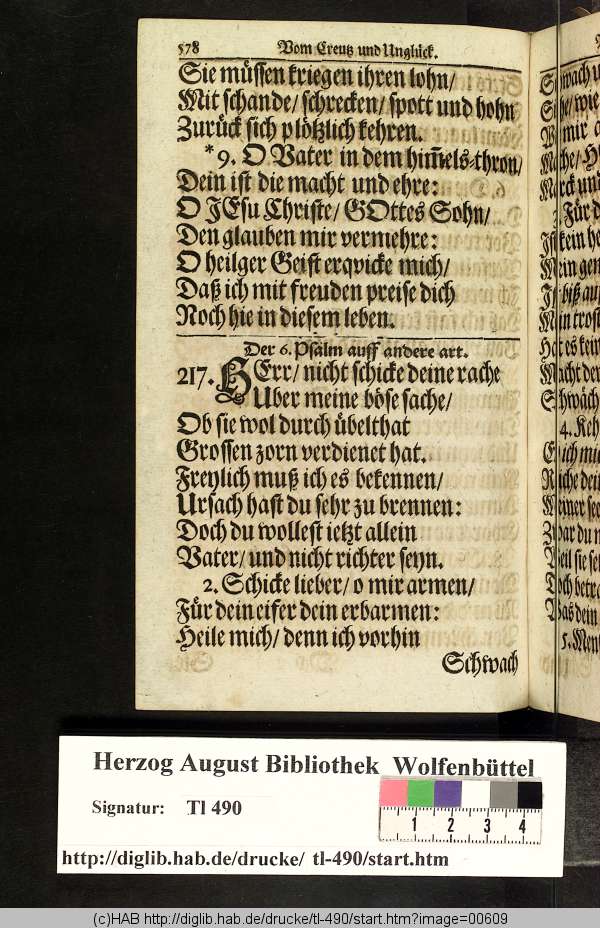 578 Vom Creutz und Unglück.
Sie müssen kriegen ihren lohn/
Mit schande/ schrecken/ spott und hohn
Zurück sich plötzlich kehren.
*9. O Vater in dem him̃els-thron/
Dein ist die macht und ehre:
O JEsu Christe/ GOttes Sohn/
Den glauben mir vermehre:
O heilger Geist erqvicke mich/
Daß ich mit freuden preise dich
Noch hie in diesem leben.
Der 6. Psalm auff andere art.
217. HErr/ nicht schicke deine rache
Uber meine böse sache/
Ob sie wol durch übelthat
Grossen zorn verdienet hat.
Freylich muß ich es bekennen/
Ursach hast du sehr zu brennen:
Doch du wollest ietzt allein
Vater/ und nicht richter seyn.
2. Schicke lieber/ o mir armen/
Für dein eifer dein erbarmen:
Heile mich/ denn ich vorhin
Schwach
Herzog August Bibliothek Wolfenbüttel
Signatur: Tl 490
1 2 3 4
http://diglib.hab.de/drucke/ tl-490/start.htm
(c)HAB http://diglib.hab.de/drucke/tl-490/start.htm?image=00609